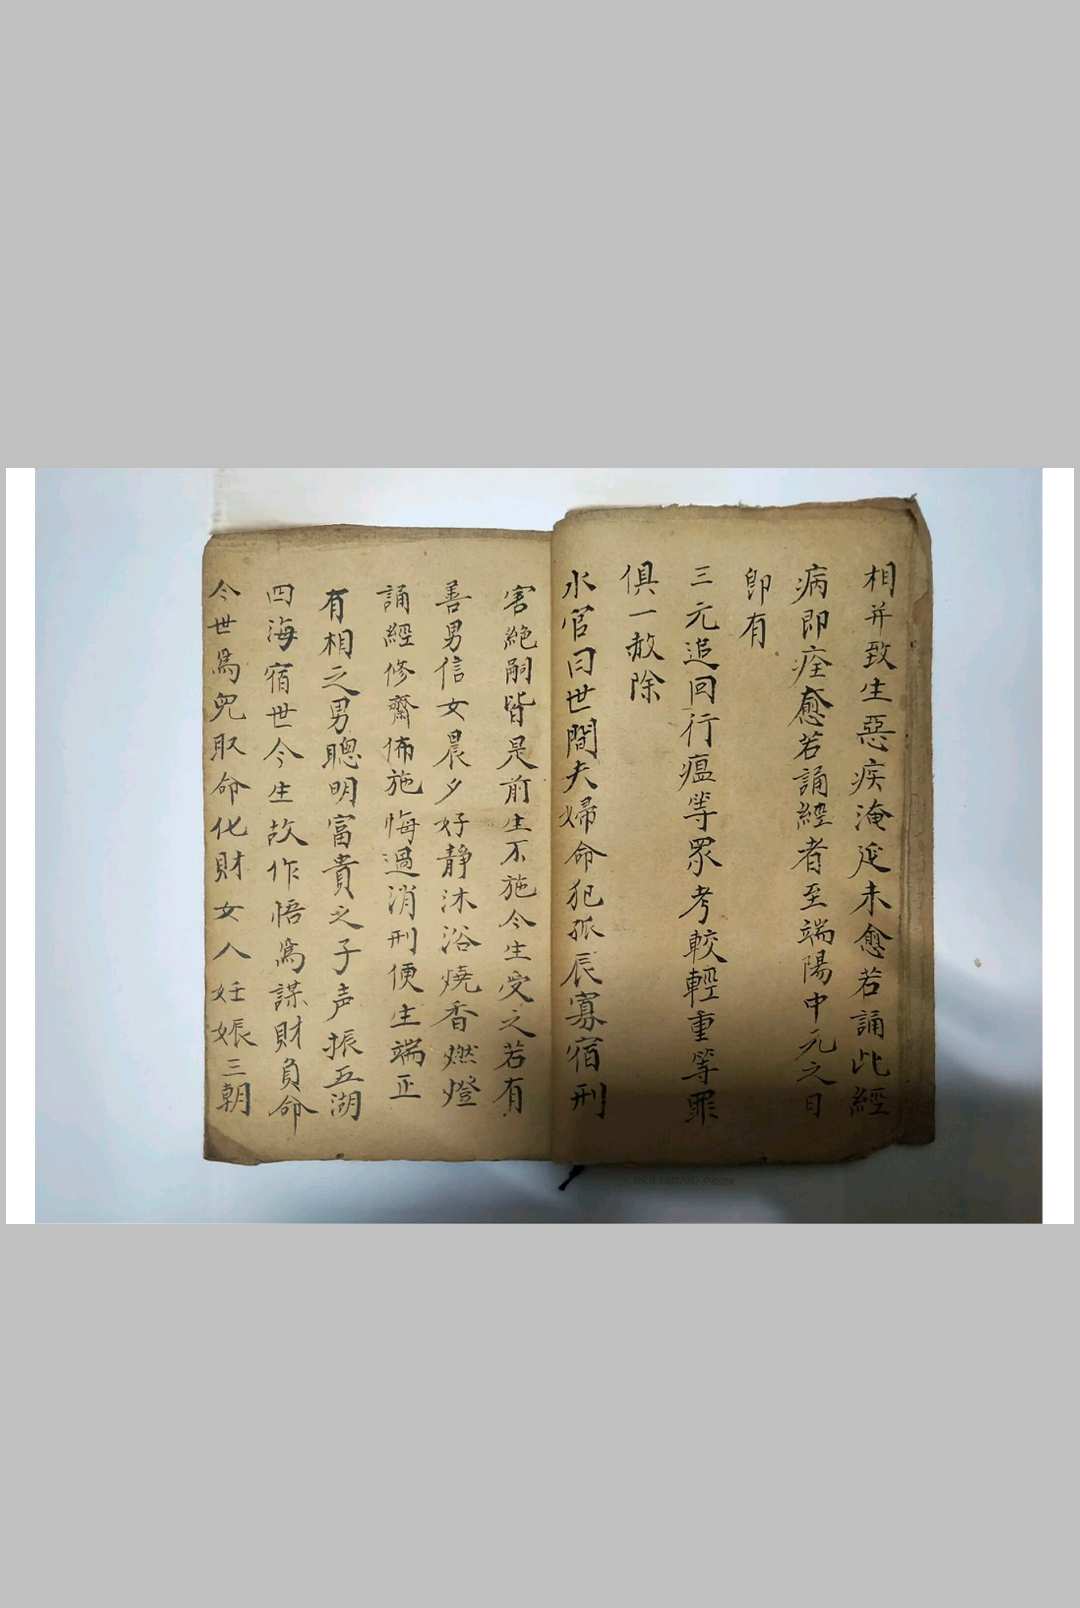 相并致生惡疾淹延未愈若誦此經
病即痊癒若誦經者至端陽中元之日
即有
三元追回行瘟等眾考較輕重等罪
俱一赦除
水官曰世間夫婦命犯孤辰寡宿刑
害絶嗣皆是前生不施今生受之若有
善男信女晨夕好静沐浴燒香燃燈
誦經修齋佈施悔過消刑便生端正
有相之男聰明富貴之子声振五湖
四海宿世今生故作悟為謀財負命
今世為児取命化財女人妊娠三朝